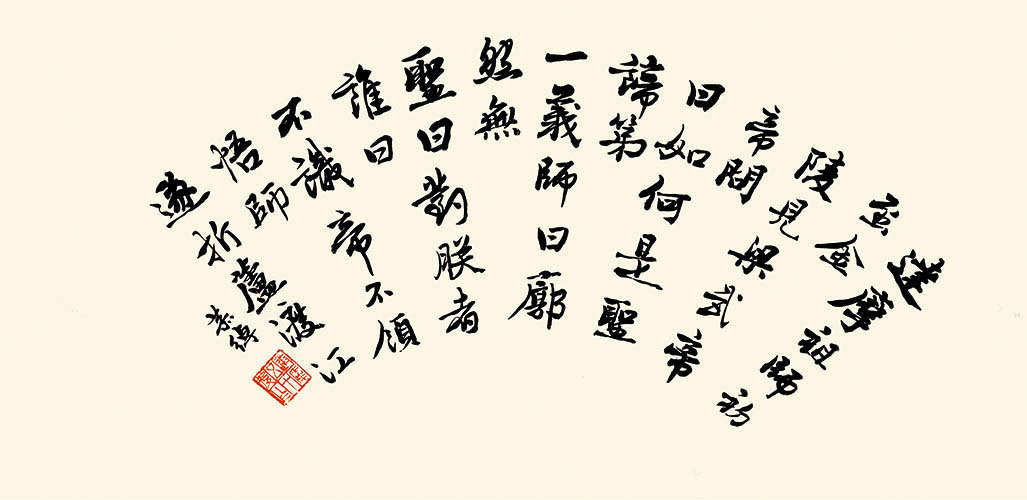 達摩祖師初
至金
陵見與武帝
帝問
曰如何是聖
諦第
一義師曰廓
然無
聖曰對朕者
誰曰
不識帝不領
悟師
遂折蘆渡江